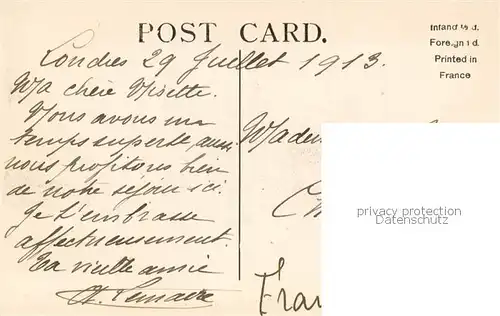 POST CARD.
Inland ½ d.
Foreign 1 d.
Printed in
France
Londres 29 Juillet 1913.
Ma chère Misette.
Nous avons un
temps superbe, aussi
nous profitons bien
de notre séjour ici.
Je t'embrasse
affectueusement.
Ta vieille amie
Lemaire
Made
Fran
privacy protection
VIDEOO.COM